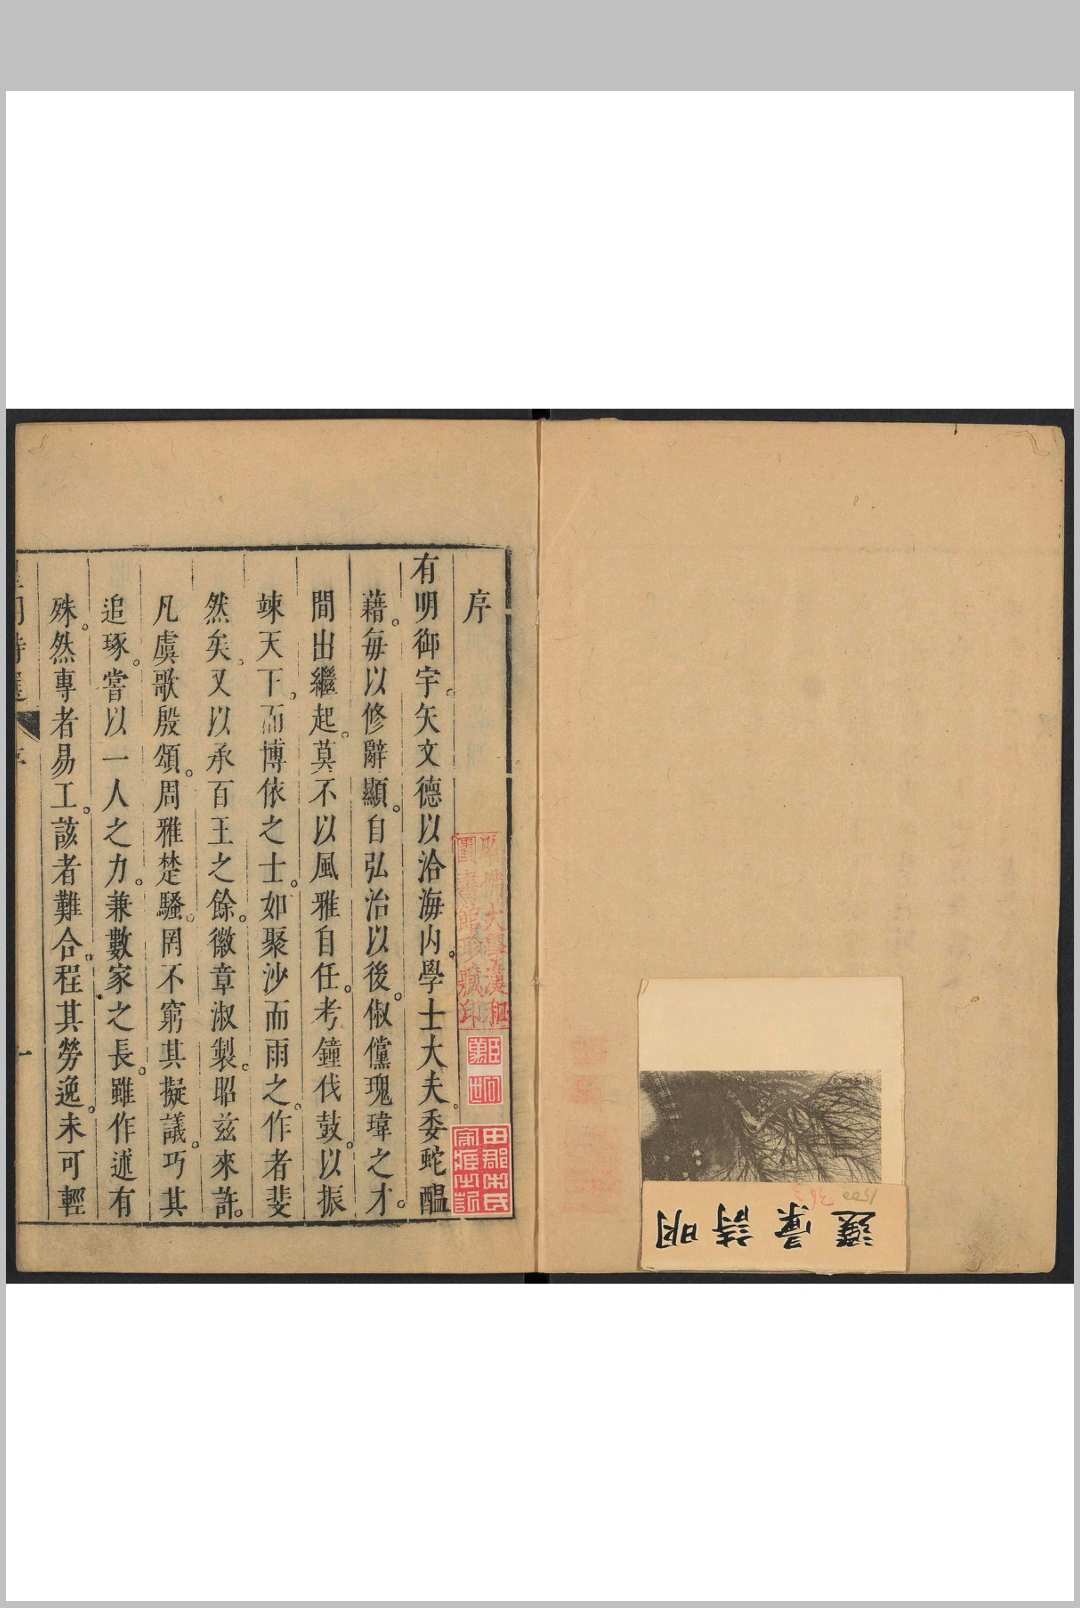 序
有明御宇。矢文德以洽海内。學士大夫。委蛇醞
藉。每以修辭顯。自弘治以後。俶儻瑰瑋之才。
間出繼起。莫不以風雅自任。考鐘伐鼓。以振
竦天下。而博依之士。如聚沙而雨之。作者斐
然矣。又以承百王之餘。徽章淑製。昭茲來許。
凡虞歌殷頌。周雅楚騷。罔不窮其擬議。巧其
追琢。嘗以一人之力。兼數家之長。雖作述有
殊。然專者易工。該者難合。程其勞逸。未可輕
哈佛大學漢和
圖書館珍藏印
田郡宋氏
家藏之記
明詩彙選